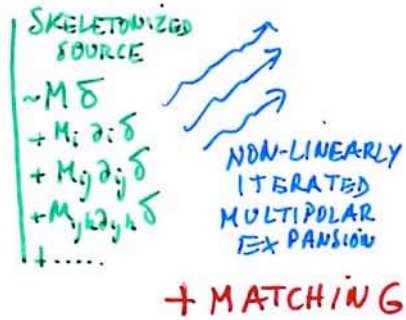 SKELETONIZED
SOURCE
~M δ
+ Mᵢ ∂ᵢ δ
+ Mᵢⱼ ∂ᵢⱼ δ
+ Mᵢⱼₖ ∂ᵢⱼₖ δ
+ .....
NON-LINEARLY
ITERATED
MULTIPOLAR
EXPANSION
+ MATCHING